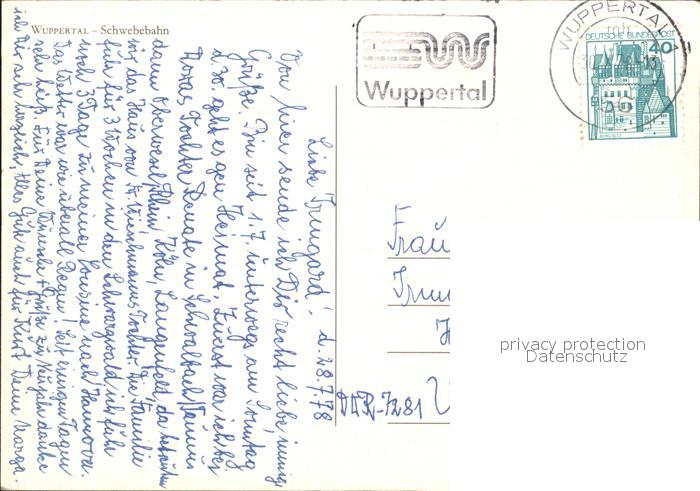 WUPPERTAL – Schwebebahn
Wuppertal
WUPPERTAL
DEUTSCHE BUNDESPOST
40
BURG ELTZ
Liebe Irmgard! d. 28.7.78
Von hier sende ich Dir recht liebe, innige
Grüße. Bin seit 1.7. unterwegs am Sonntag
d. 30. geht es gen Heimat. Zuerst war ich bei
Doras Tochter Renate in Schwalbach/Taunus
dann Oberwesel/Rhein, Köln, Langenfeld, da
wir das Haus von Tochter. Die Familie
fuhr für 3 Wochen in den Schwarzwald, ich fuhr
noch 3 Tage zu meiner Cousine nach Hannover.
Das Wetter war wie überall Regen! Seit einigen Tagen
sehr heiß. Für Deine Wünsche + Grüße zu danke
ich Dir sehr herzlich, alles Gute auch für Kurt Deine Marga.
Frau
DDR-7281
privacy protection
Datenschutz